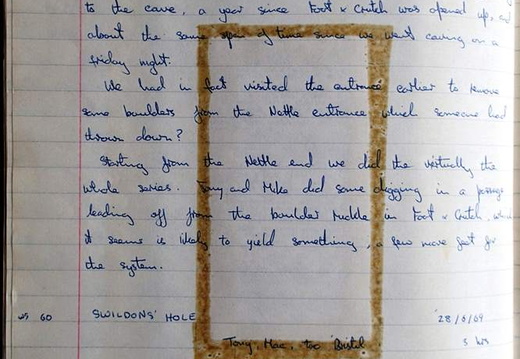 to the cave, a year since Foot & Crutch was opened up, and
about the same span of time since we went caving on a
friday night.
We had in fact visited the entrance earlier to remove
some boulders from the Nettle entrance which someone had
thrown down?
Starting from the Nettle end we did the virtually the
whole series. Tony and Mike did some digging in a passage
leading off from the boulder ruckle in Foot & Crutch, which
it seems is likely to yield something, a few more feet for
the system.
60 SWILDONS' HOLE 28/6/69
Tony, Mac, too Bristol 5 hrs